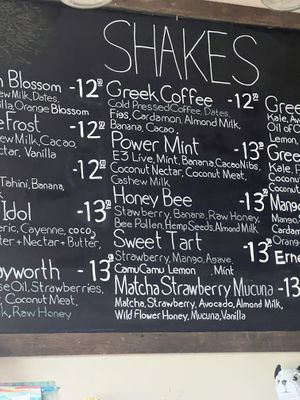 SHAKES
Blossom -12⁰⁰
Milk, Dates,
Orange Blossom
Frost -12
Milk, Cacao,
Nectar, Vanilla
-12
Tahini, Banana,
Idol -13
Cayenne, coco
+ Nectar + Butter,
worth -13
Oil, Strawberries,
Coconut Meat,
Raw Honey
Greek Coffee -12⁰⁰
Cold Pressed Coffee, Dates,
Figs, Cardamon, Almond Milk,
Banana, Cacao,
Power Mint -13
E3 Live, Mint, Banana, Cacao Nibs,
Coconut Nectar, Coconut Meat,
Cashew Milk
Honey Bee -13
Stawberry, Banana, Raw Honey,
Bee Pollen, Hemp Seeds, Almond Milk
Sweet Tart -13
Strawberry, Mango, Agave,
CamuCamu Lemon, Mint
Matcha Strawberry Mucuna -13
Matcha, Strawberry, Avocado, Almond Milk,
Wild Flower Honey, Mucuna, Vanilla
Gree
Kale, Av
Oil of
Gree
Kale, P
Coconut
Coconut
Mango
Mango
Cardam
Orange
Erne